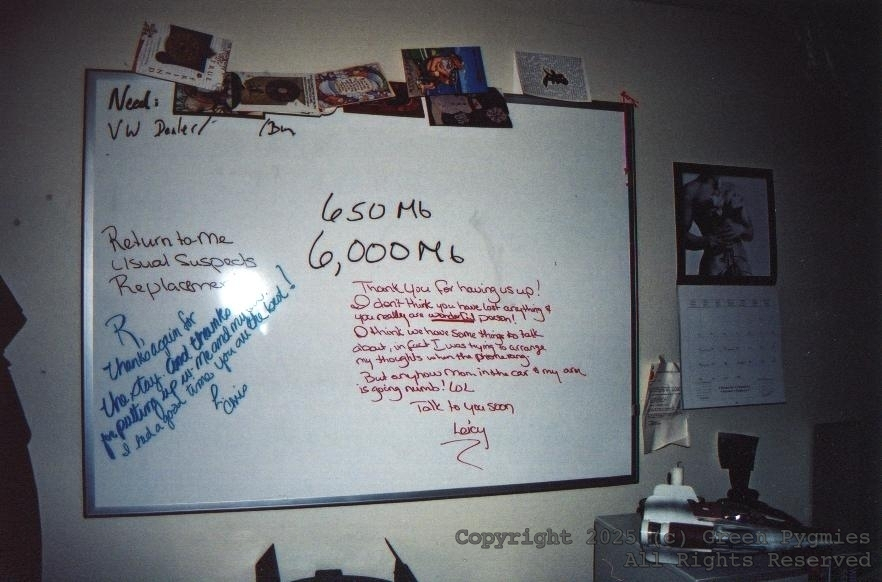 TRUE
FRIEND
Need:
VW Dealer/ /Bun
650 Mb
6,000 Mb
Return to Me
Usual Suspects
Replacemen
R,
thanks again for
the stay and thanks
for putting up w/ me and my
I had a good time you are the best!
L
Chris
Thank You for having us up!
I don't think you have lost anything &
you really are wonderful person!
I think we have some things to talk
about, in fact I was trying to arrange
my thoughts when the phone rang.
But anyhow Mom in the car & my arm
is going numb! LOL
Talk to you soon
Copyright 2025 (c) Green Pygmies
All Rights Reserved